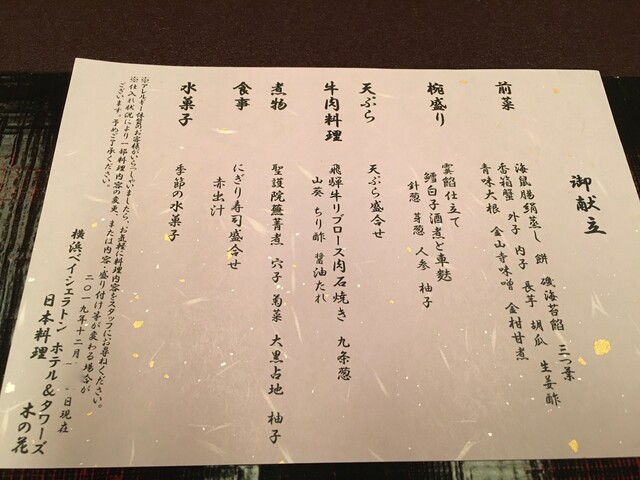 御献立
前菜
海鼠腸絹蒸し 餅 磯海苔餡 三つ葉
香箱蟹 外子 内子 長芋 胡瓜 生姜酢
青味大根 金山寺味噌 金柑甘煮
椀盛り
雲餡仕立て
鱈白子酒煮と車麩
針葱 芽葱 人参 柚子
天ぷら
天ぷら盛合せ
牛肉料理
飛騨牛リブロース肉石焼き 九条葱
山葵 ちり酢 醤油たれ
煮物
聖護院蕪菁煮 穴子 菊菜 大黒占地 柚子
食事
にぎり寿司盛合せ
赤出汁
水菓子
季節の水菓子
※アレルギー体質のお客様がいらっしゃいましたら、お気軽に料理内容をスタッフにお尋ねください。
※仕入れ状況により一部料理内容の変更、または内容・盛り付け等が変わる場合が
ございます。予めご了承ください。
二〇一九年十二月 日現在
横浜ベイシェラトン ホテル&タワーズ
日本料理 木の花